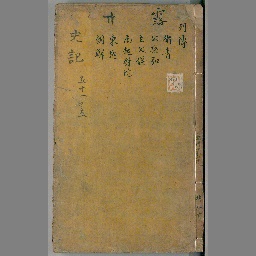 列傳
衛青
公孫弘
主父偃
南越尉佗
東越
朝鮮
史記
五十一之五